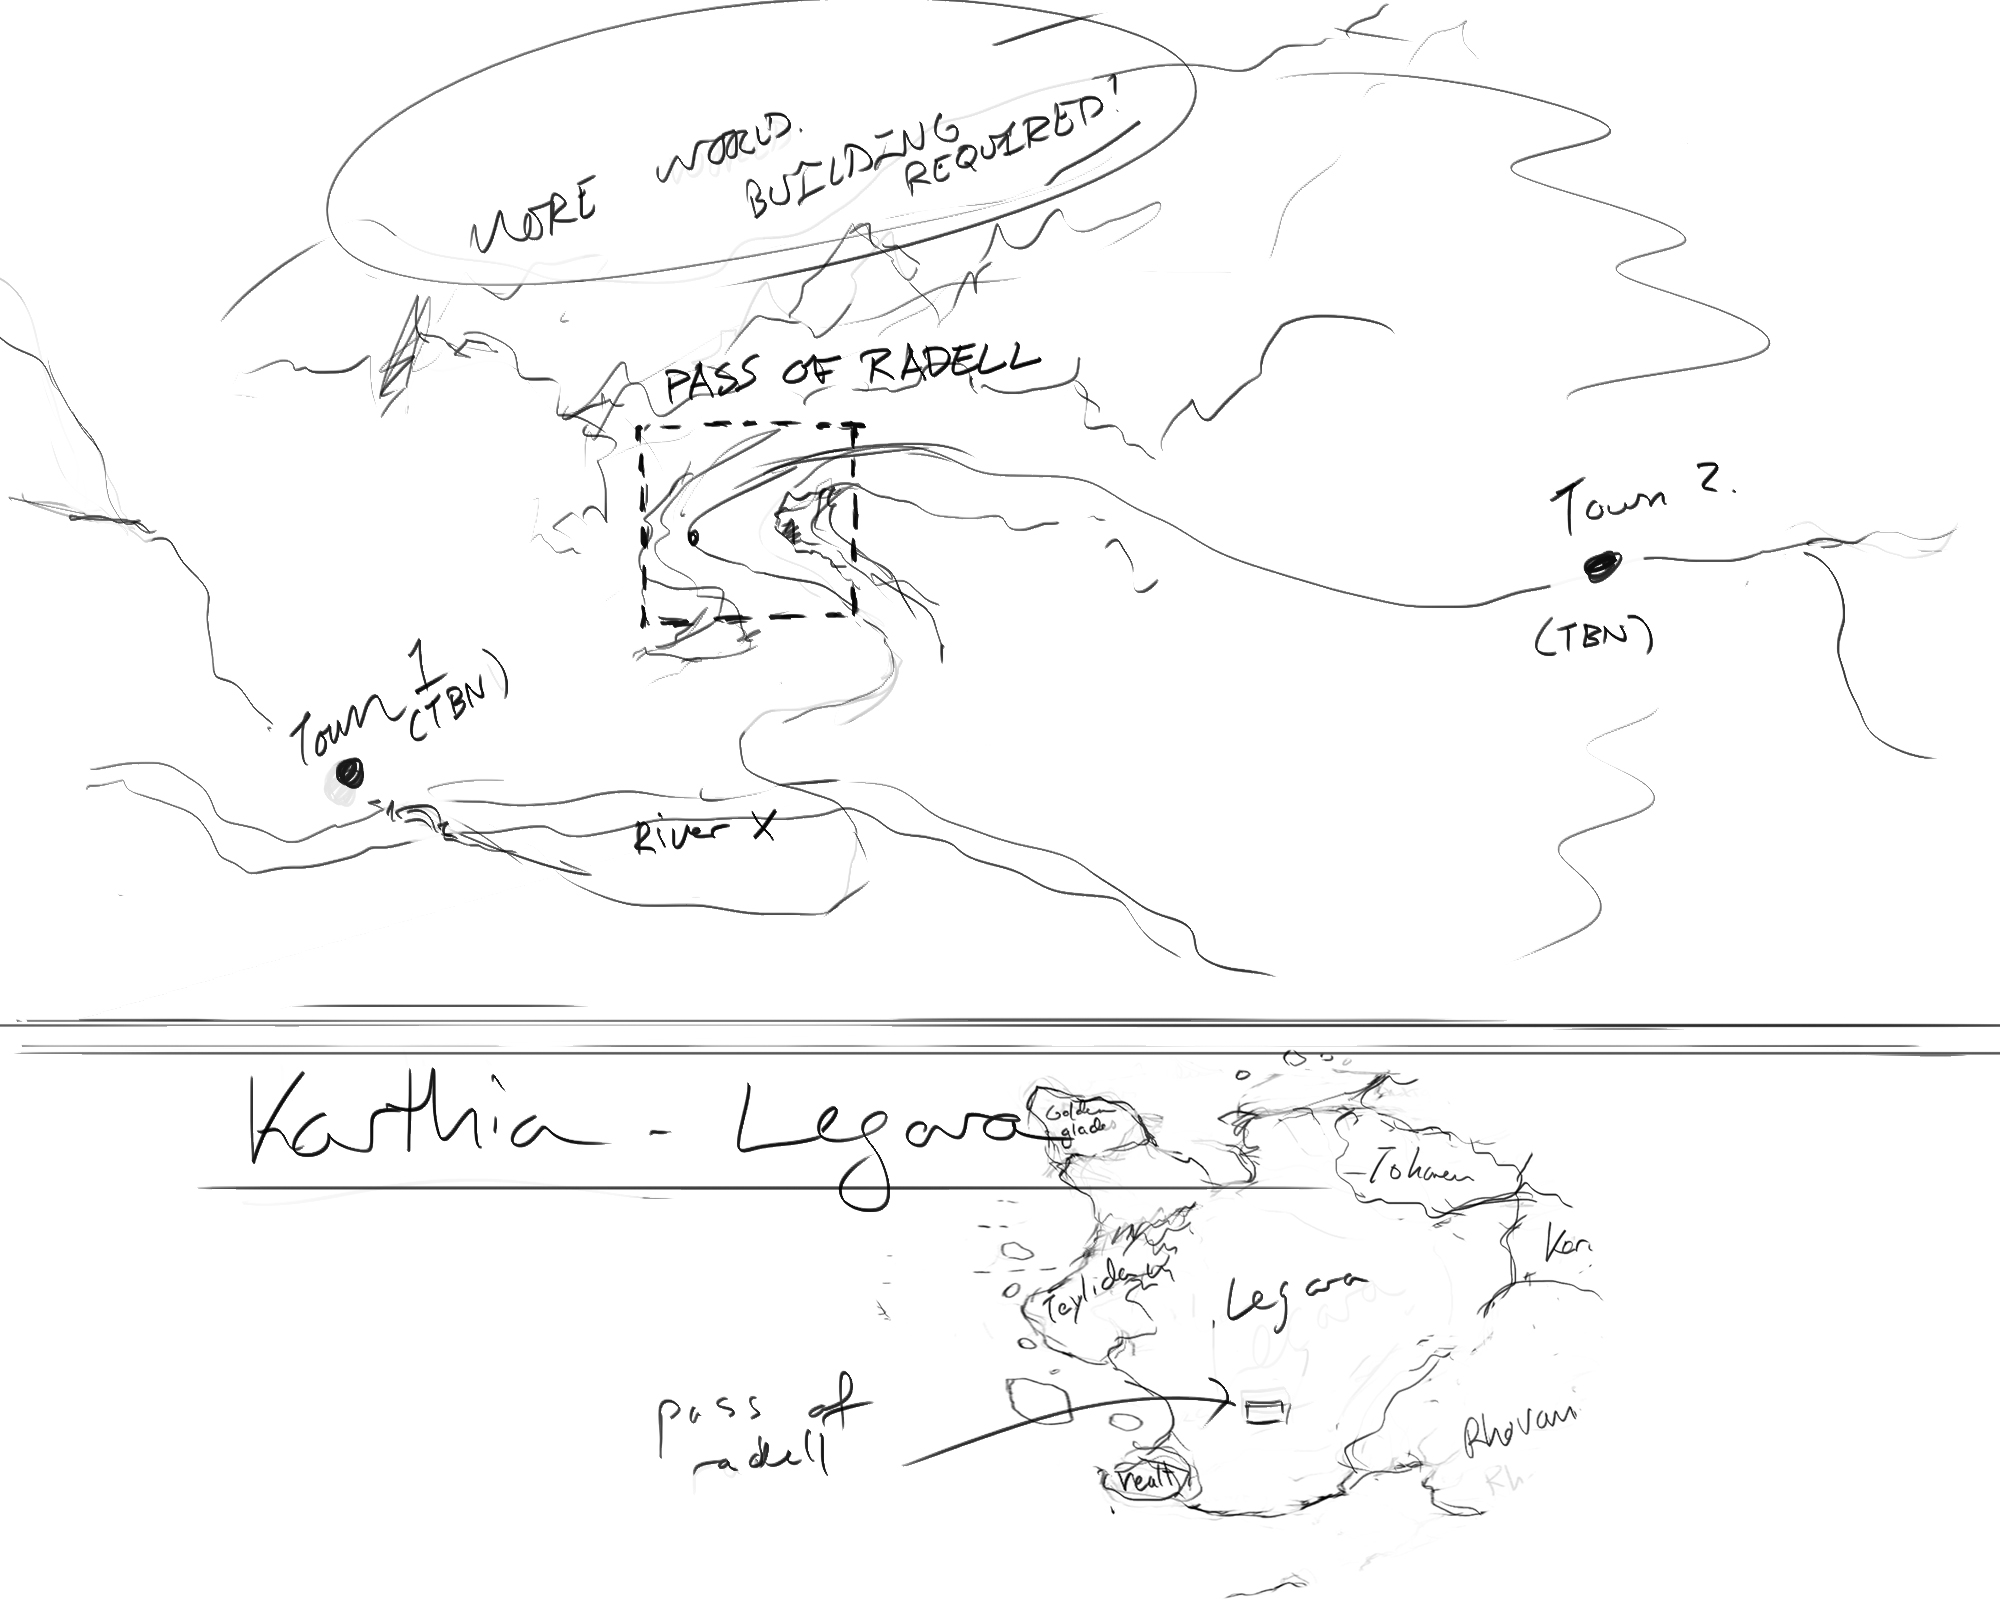 MORE WORLD.
BUILDING
REQUIRED!
PASS OF RADELL
Town 2.
(TBN)
Town 1
(TBN)
River X
Karthia - Legara
Golden
glades
Tohaven
Kar
Teyliden
Legara
pass of
radell
Rhovan
Rh